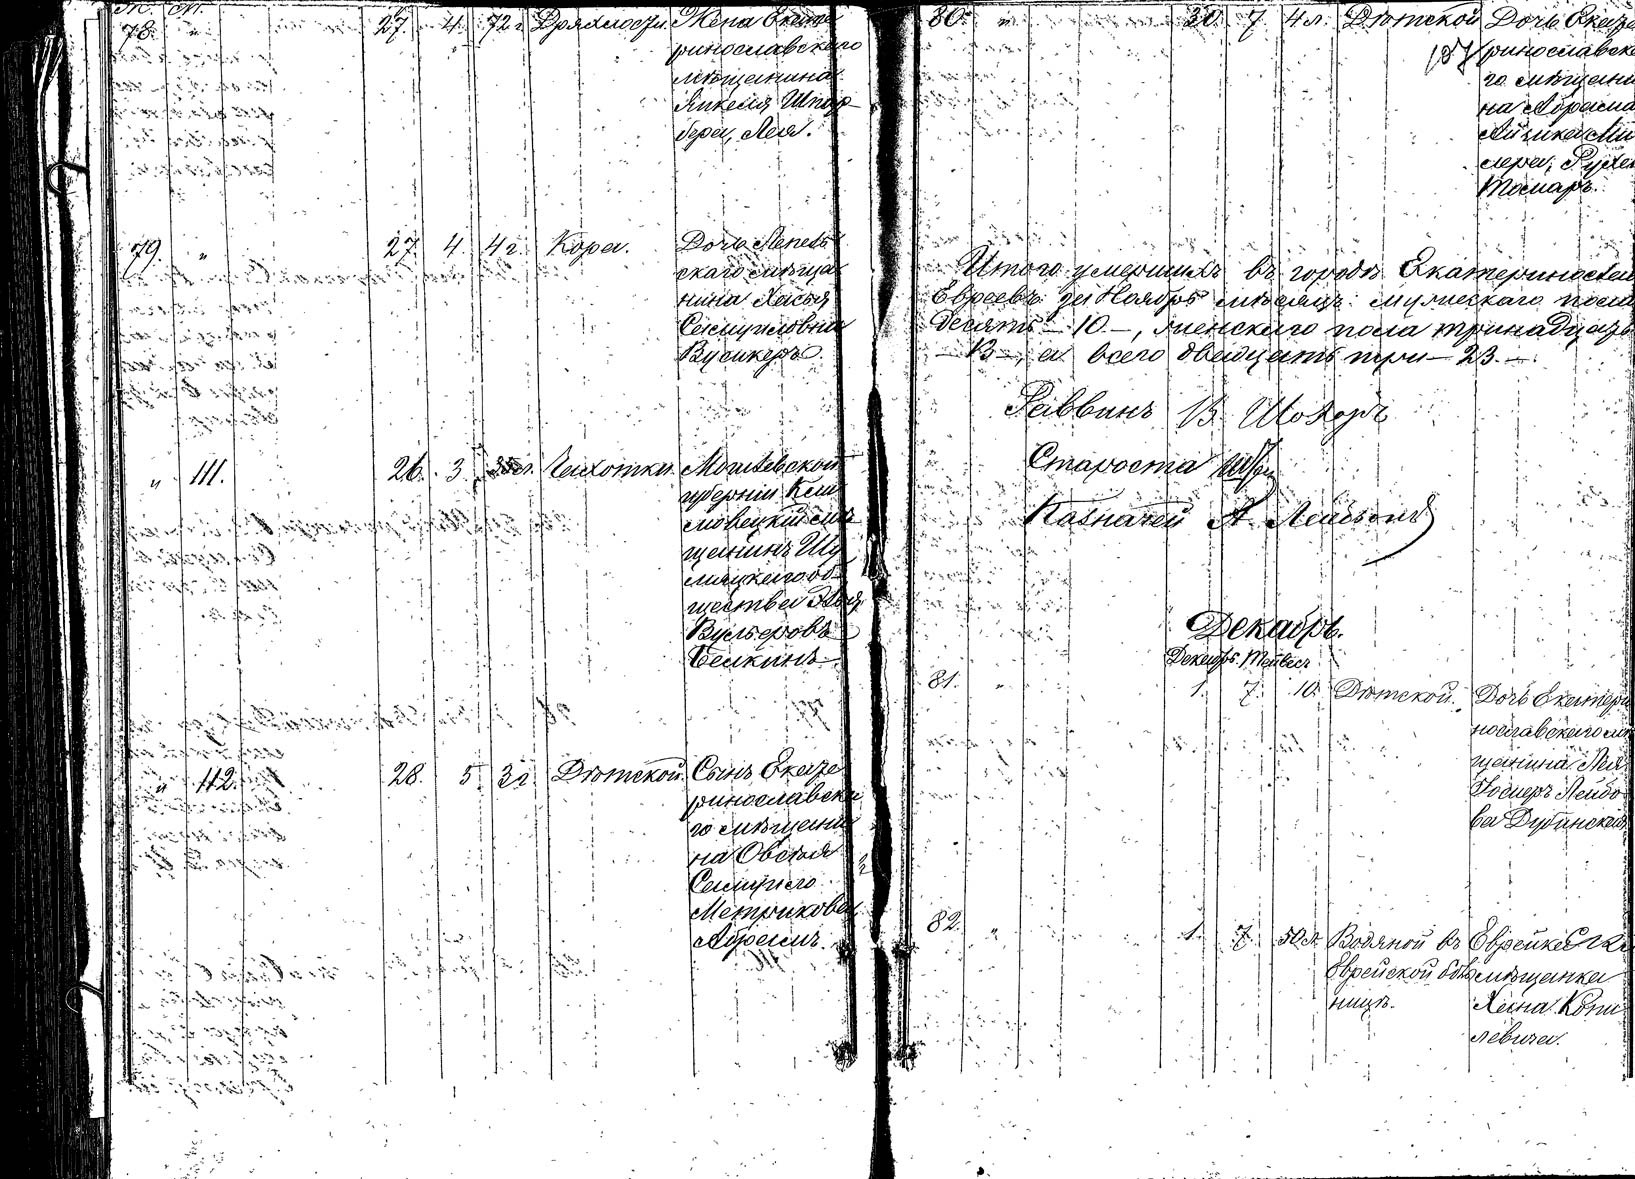 Ж. М.
78. " 27 4 72 г. Дряхлости Жена Екате
ринославскаго
мѣщанина
Янкеля Шпар
бера, Лея.
79. " 27 4 4 г. Кора. Дочь
скаго мѣща
нина Хасья
Самуиловна
" 111. 26. 3 Чахотки Могилевской
губерніи Кли
мовецкій мѣ
щанинъ Шу
мяцкаго об
щества
Вульфовъ
Белкинъ
" 112. 28. 5 3 г. Дѣтской Сынъ Екате
ринославска
го мѣщани
на Овсѣя
Самуило
Метрикова
Абрамъ.
80. " 30 7 4 л. Дѣтской Дочь Екате
ринославска
го мѣщани
на Абрама
Айзика Ми
лера, Рухля
Тамаръ.
Итого умершихъ въ городѣ Екатеринослав
Евреевъ за Ноябрь мѣсяцъ мужескаго пола
десять – 10 –, женскаго пола тринадцать
– 13 –, а всего двадцать три – 23. –
Раввинъ В. Шохоръ
Староста
Казначей А.
Декабрь.
Декабрь. Тейвесъ
81. " 1. 7 10. Дѣтской. Дочь Екатери
нославскаго мѣ
щанина Лея
Эсѳирь Лейбо
ва Дубинская
82. " 1. 7. 50 л. Водяной въ Еврейка
Еврейской боль мѣщанка
ницѣ. Хана Копи
левича.